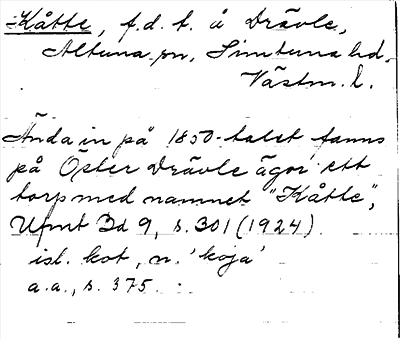 -Kåtte, f.d.t. å Drävle,
Altuna sn, Simtuna hd.
Västm. l.
Ända in på 1850-talet fanns
på Öster Drävle ägor ett
torp med namnet "Kåtte",
Ufmt Bd 9, s. 301 (1924)
isl. kot, n. 'koja'
a.a., s. 375.